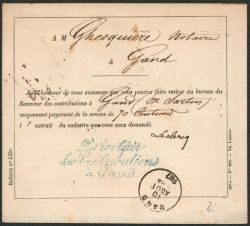 A M Ghesquière Notaire
à Gand
J'ai l'honneur de vous annoncer que vous pouvez faire retirer au bureau du
Receveur des contributions à Gand (M. Sartou)
moyennant payement de la somme de 70 Centimes
1 extrait du cadastre que vous avez demandé.
Leclercq
Directeur
des Contributions
à Gand
GAND
10
AOUT
167